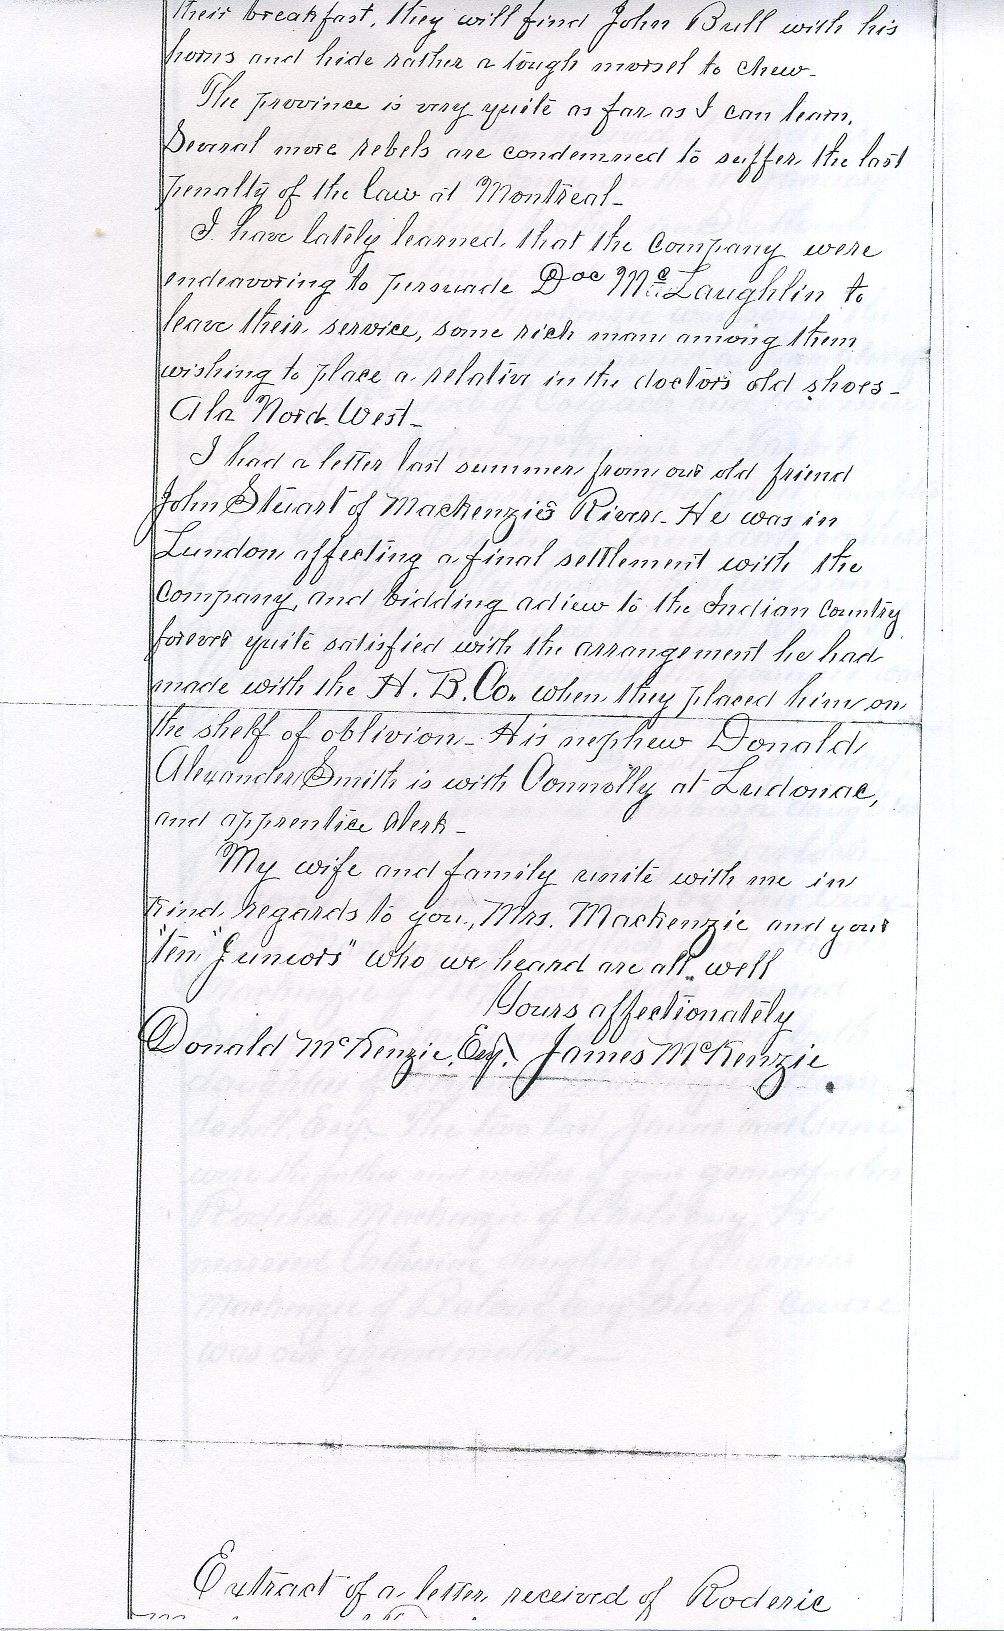 their breakfast, they will find John Bull with his
horns and hide rather a tough morsel to chew-
The province is very quite as far as I can learn.
Several more rebels are condemned to suffer the last
penalty of the law at Montreal-
I have lately learned that the company were
endeavoring to persuade Doc McLaughlin to
leave their service, some rich man among them
wishing to place a relative in the doctors old shoes-
Ala Nord-West-
I had a letter last summer from our old friend
John Stuart of Mackenzie's River- He was in
Lundon affecting a final settlement with the
company, and bidding adieu to the Indian country
forever quite satisfied with the arrangement he had
made with the H. B. Co. when they placed him on
the shelf of oblivion- His nephew Donald
Alexander Smith is with Connolly at Ludousac,
and apprentice clerk-
My wife and family unite with me in
kind regards to you, Mrs. Mackenzie and your
"ten "Juniors" who we heard are all well
Yours affectionately
Donald McKenzie, Esq. James McKenzie
dentt. Esq. The two last James and Anne
were the father and mother of your grandfather
Roderic Mackenzie of He
married Catherine daughter of Alexander
Mackenzie of she of course
was our grandmother-
Extract of a letter received of Roderic